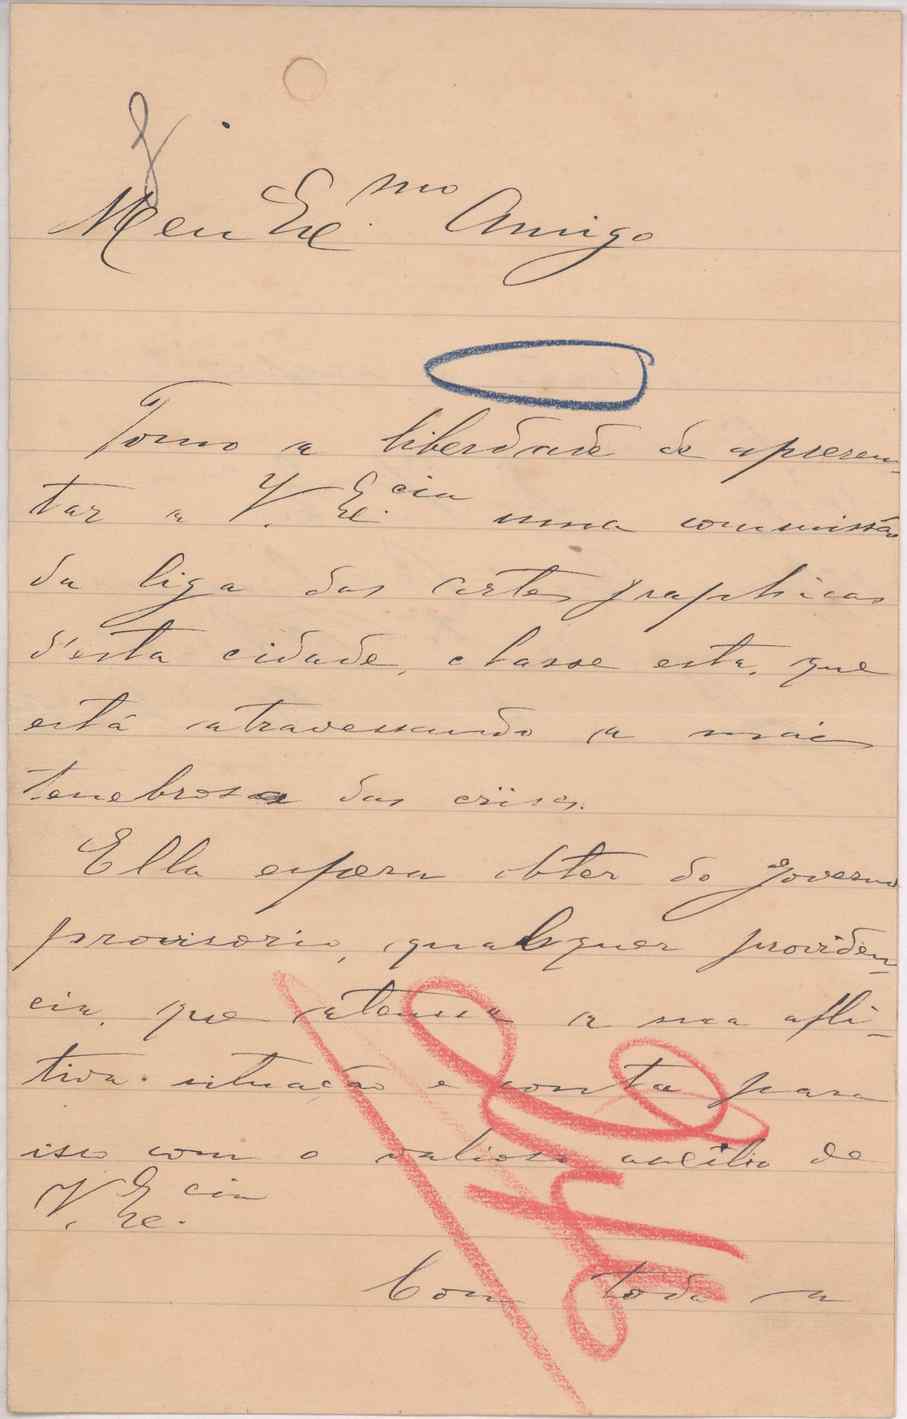 Meu Ex.mo Amigo
Tomo a liberdade de apresen-
tar a V. Ex.cia uma commissão
da liga das Artes graphicas
d'esta cidade, classe esta, que
está atravessando a mais
tenebrosa das crises.
Ella espera obter do governo
provisorio, qualquer providen-
cia, que atenua a sua afli-
tiva situação e conta para
isso com o valioso auxilio de
V. Ex.cia
Com toda a